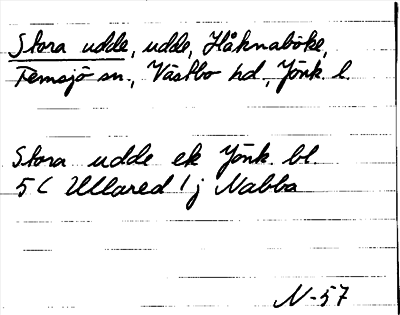 Stora udde, udde, Håknaböke,
Femsjö sn., Västbo hd., Jönk. l.
Stora udde ek Jönk. bl.
5 C Ullared 1 j Nabba
N-57